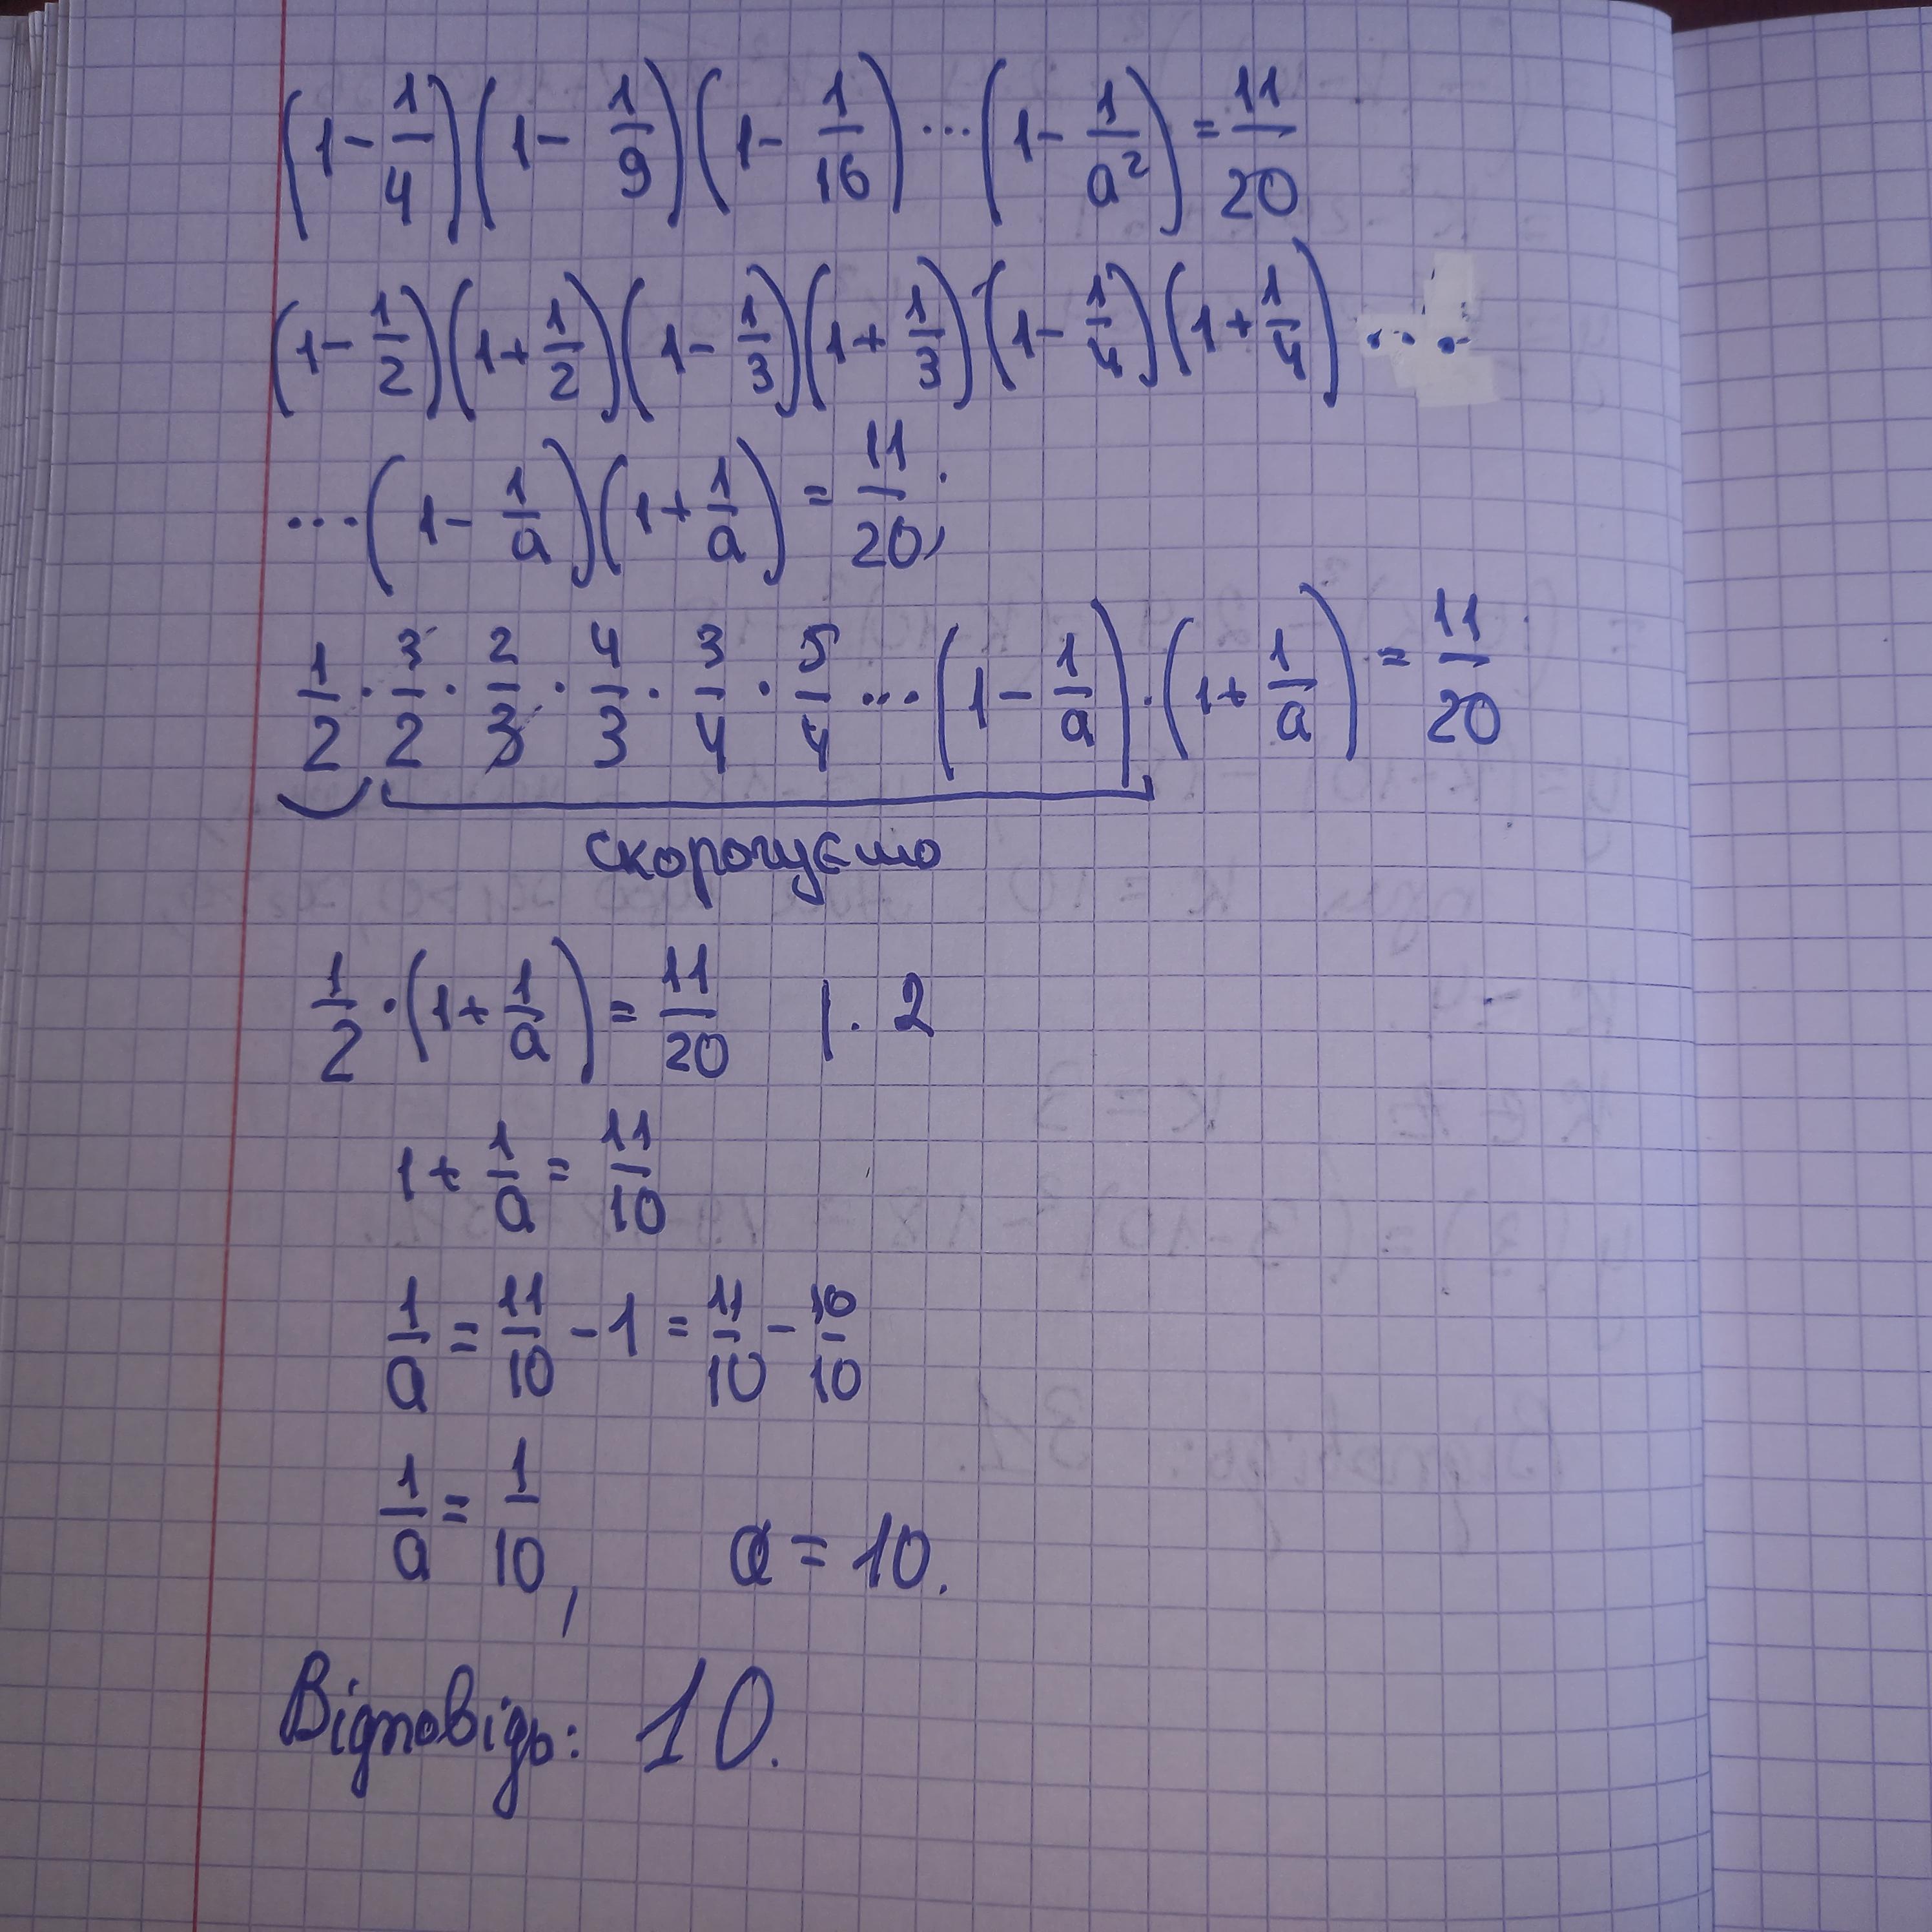 (1 - 1/4)(1 - 1/9)(1 - 1/16) ... (1 - 1/a²) = 11/20
(1 - 1/2)(1 + 1/2)(1 - 1/3)(1 + 1/3)(1 - 1/4)(1 + 1/4) ...
...(1 - 1/a)(1 + 1/a) = 11/20;
1/2 · 3/2 · 2/3 · 4/3 · 3/4 · 5/4 ... (1 - 1/a) · (1 + 1/a) = 11/20
скорочуємо
1/2 · (1 + 1/a) = 11/20 | · 2
1 + 1/a = 11/10
1/a = 11/10 - 1 = 11/10 - 10/10
1/a = 1/10, a = 10.
Відповідь: 10.